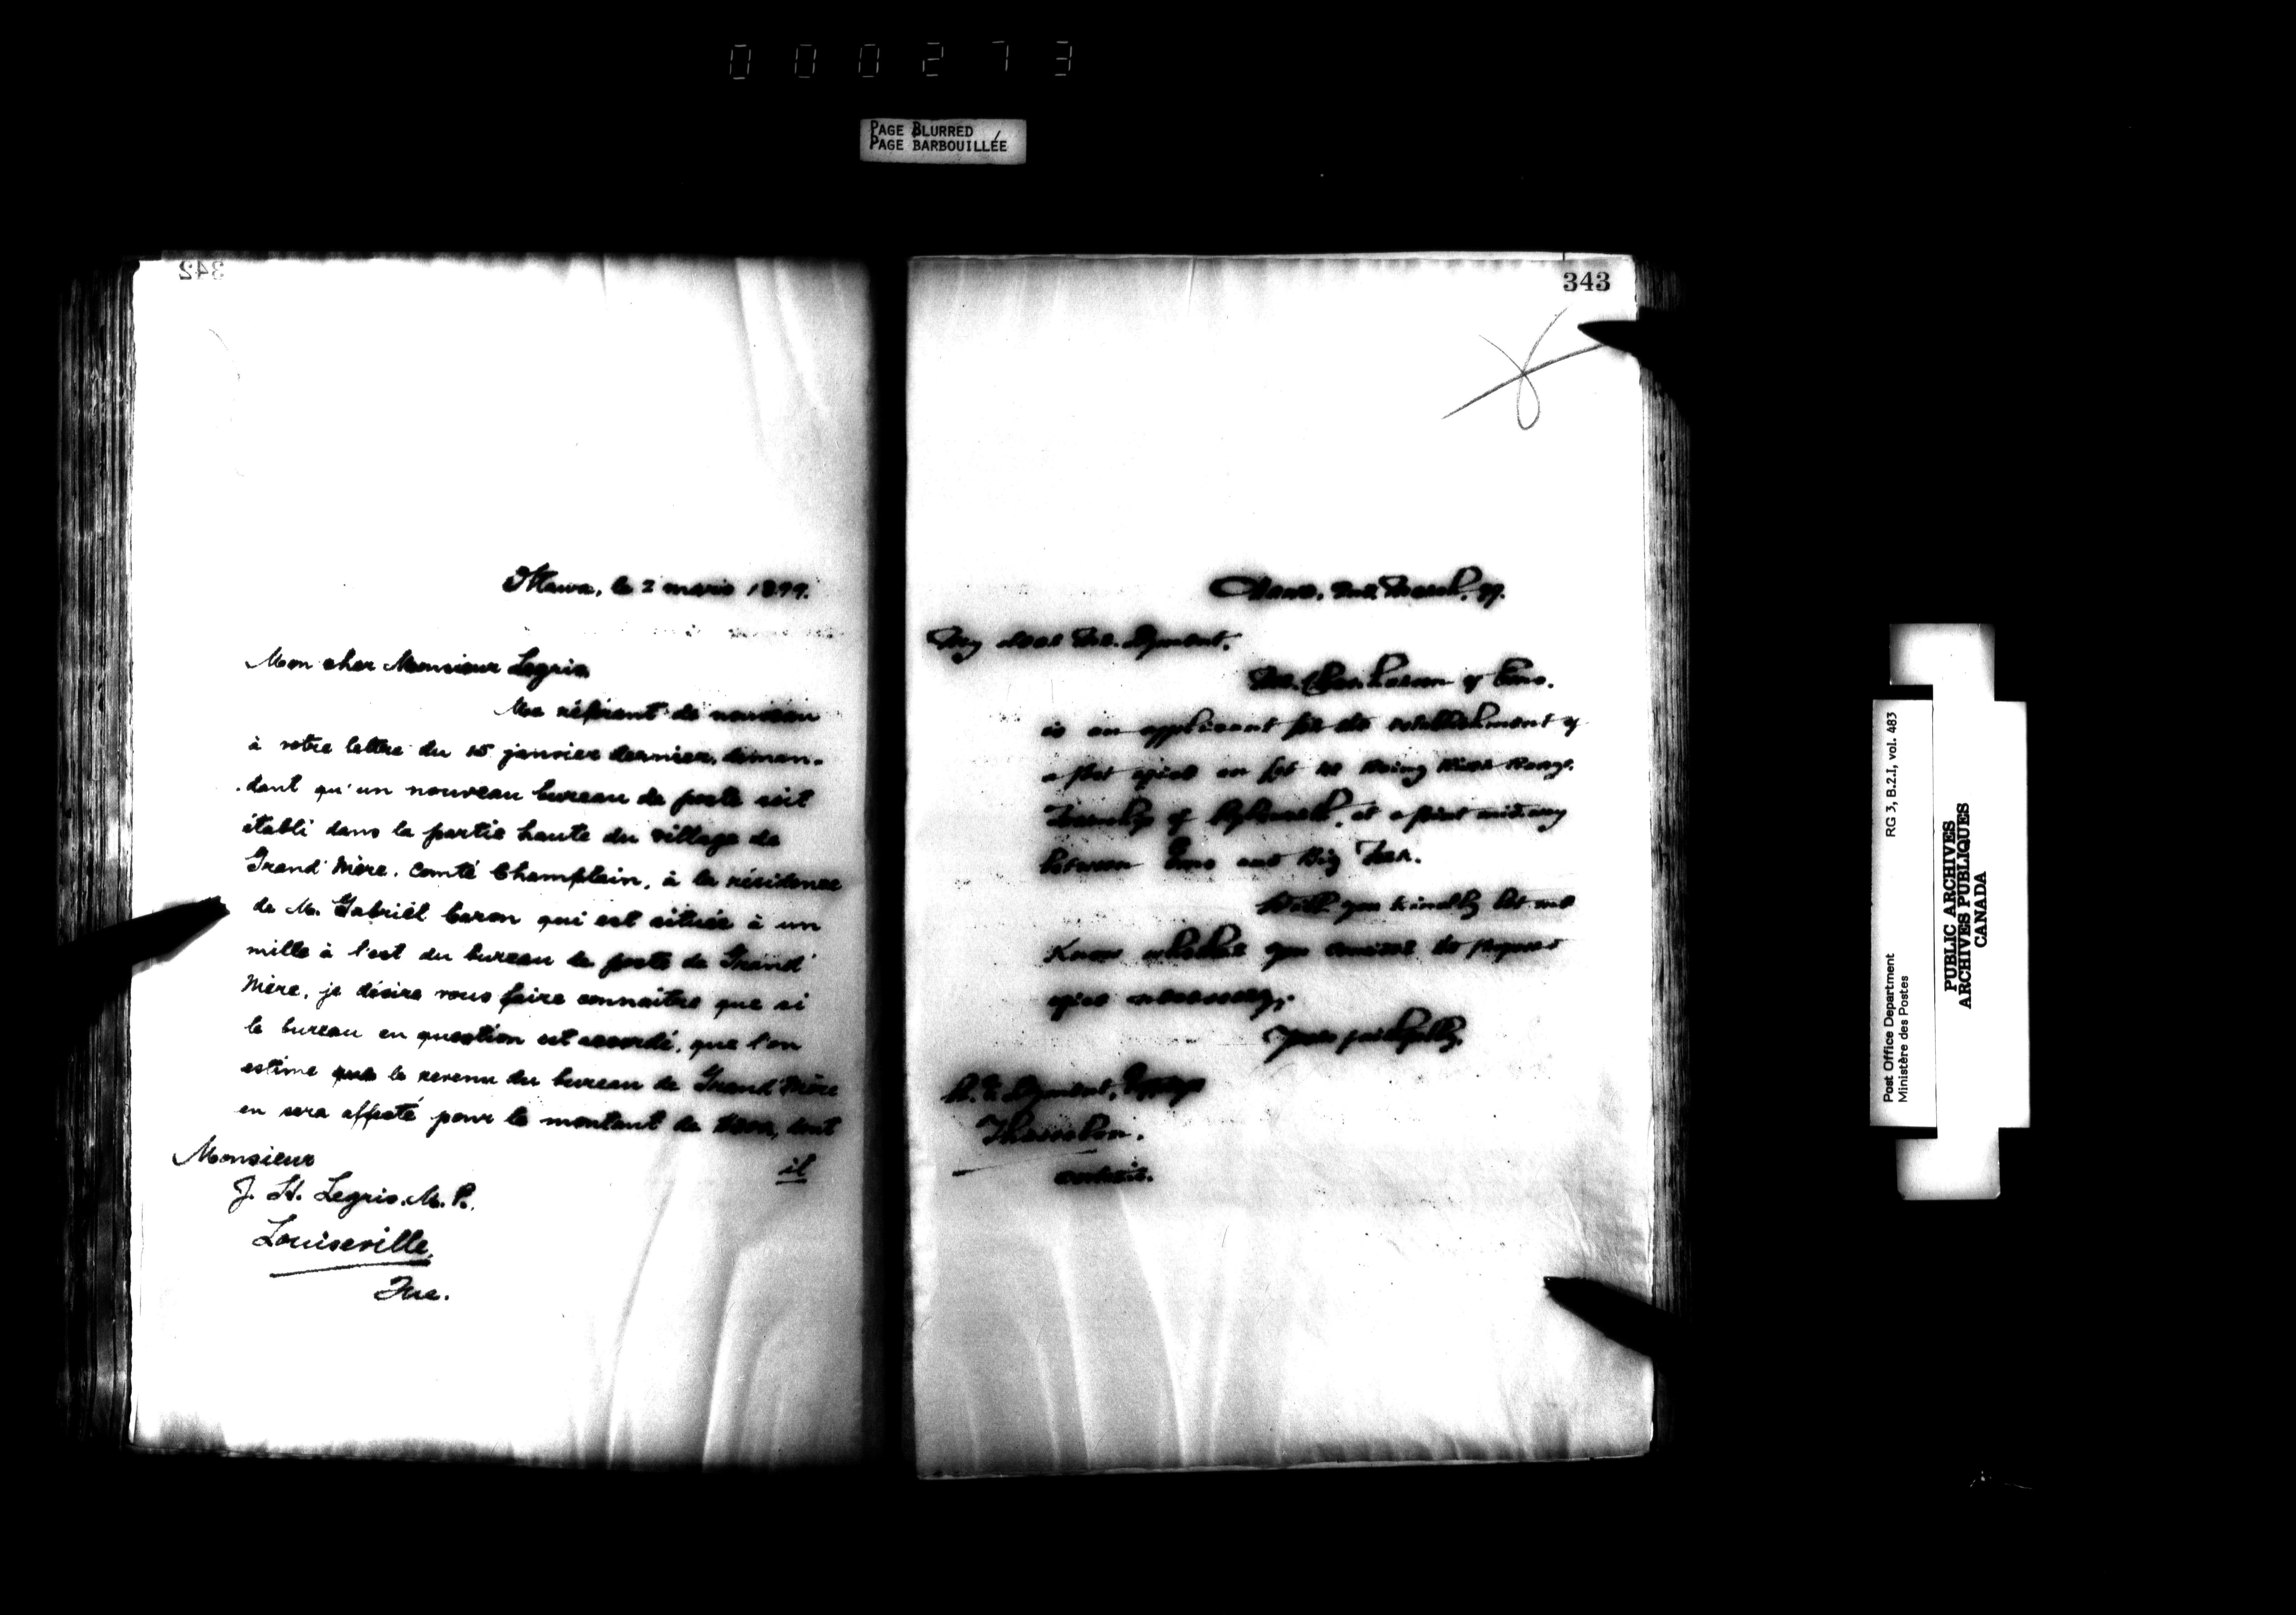 000273
PAGE BLURRED
PAGE BARBOUILLÉE
342
Ottawa, le 2 mars 1899.
Mon cher Monsieur Legris
Me référant de nouveau
à votre lettre du 15 janvier dernier, deman-
dant qu'un nouveau bureau de poste soit
établi dans la partie haute du village de
Grand'Mère, comté Champlain, à la résidence
de M. Gabriel Caron qui est située à un
mille à l'est du bureau de poste de Grand'
Mère, je désire vous faire connaître que si
le bureau en question est accordé, que l'on
estime que le revenu du bureau de Grand'Mère
en sera affecté pour le montant de dont
il
Monsieur
J. H. Legris, M. P.
Louiseville,
Que.
343
Ottawa, 2nd March, 99.
My dear Mr. Dyment,
Mr. Chas. of Emo,
is an applicant for the establishment of
a post office on lot River Range,
Township of at a point midway
between Emo and Big Fork.
Will you kindly let me
know whether you consider the proposed
office necessary.
Yours faithfully,
A. E. Dyment,
Thessalon,
Ontario.
Post Office Department
Ministère des Postes
RG 3, B.2.I, vol. 483
PUBLIC ARCHIVES
ARCHIVES PUBLIQUES
CANADA